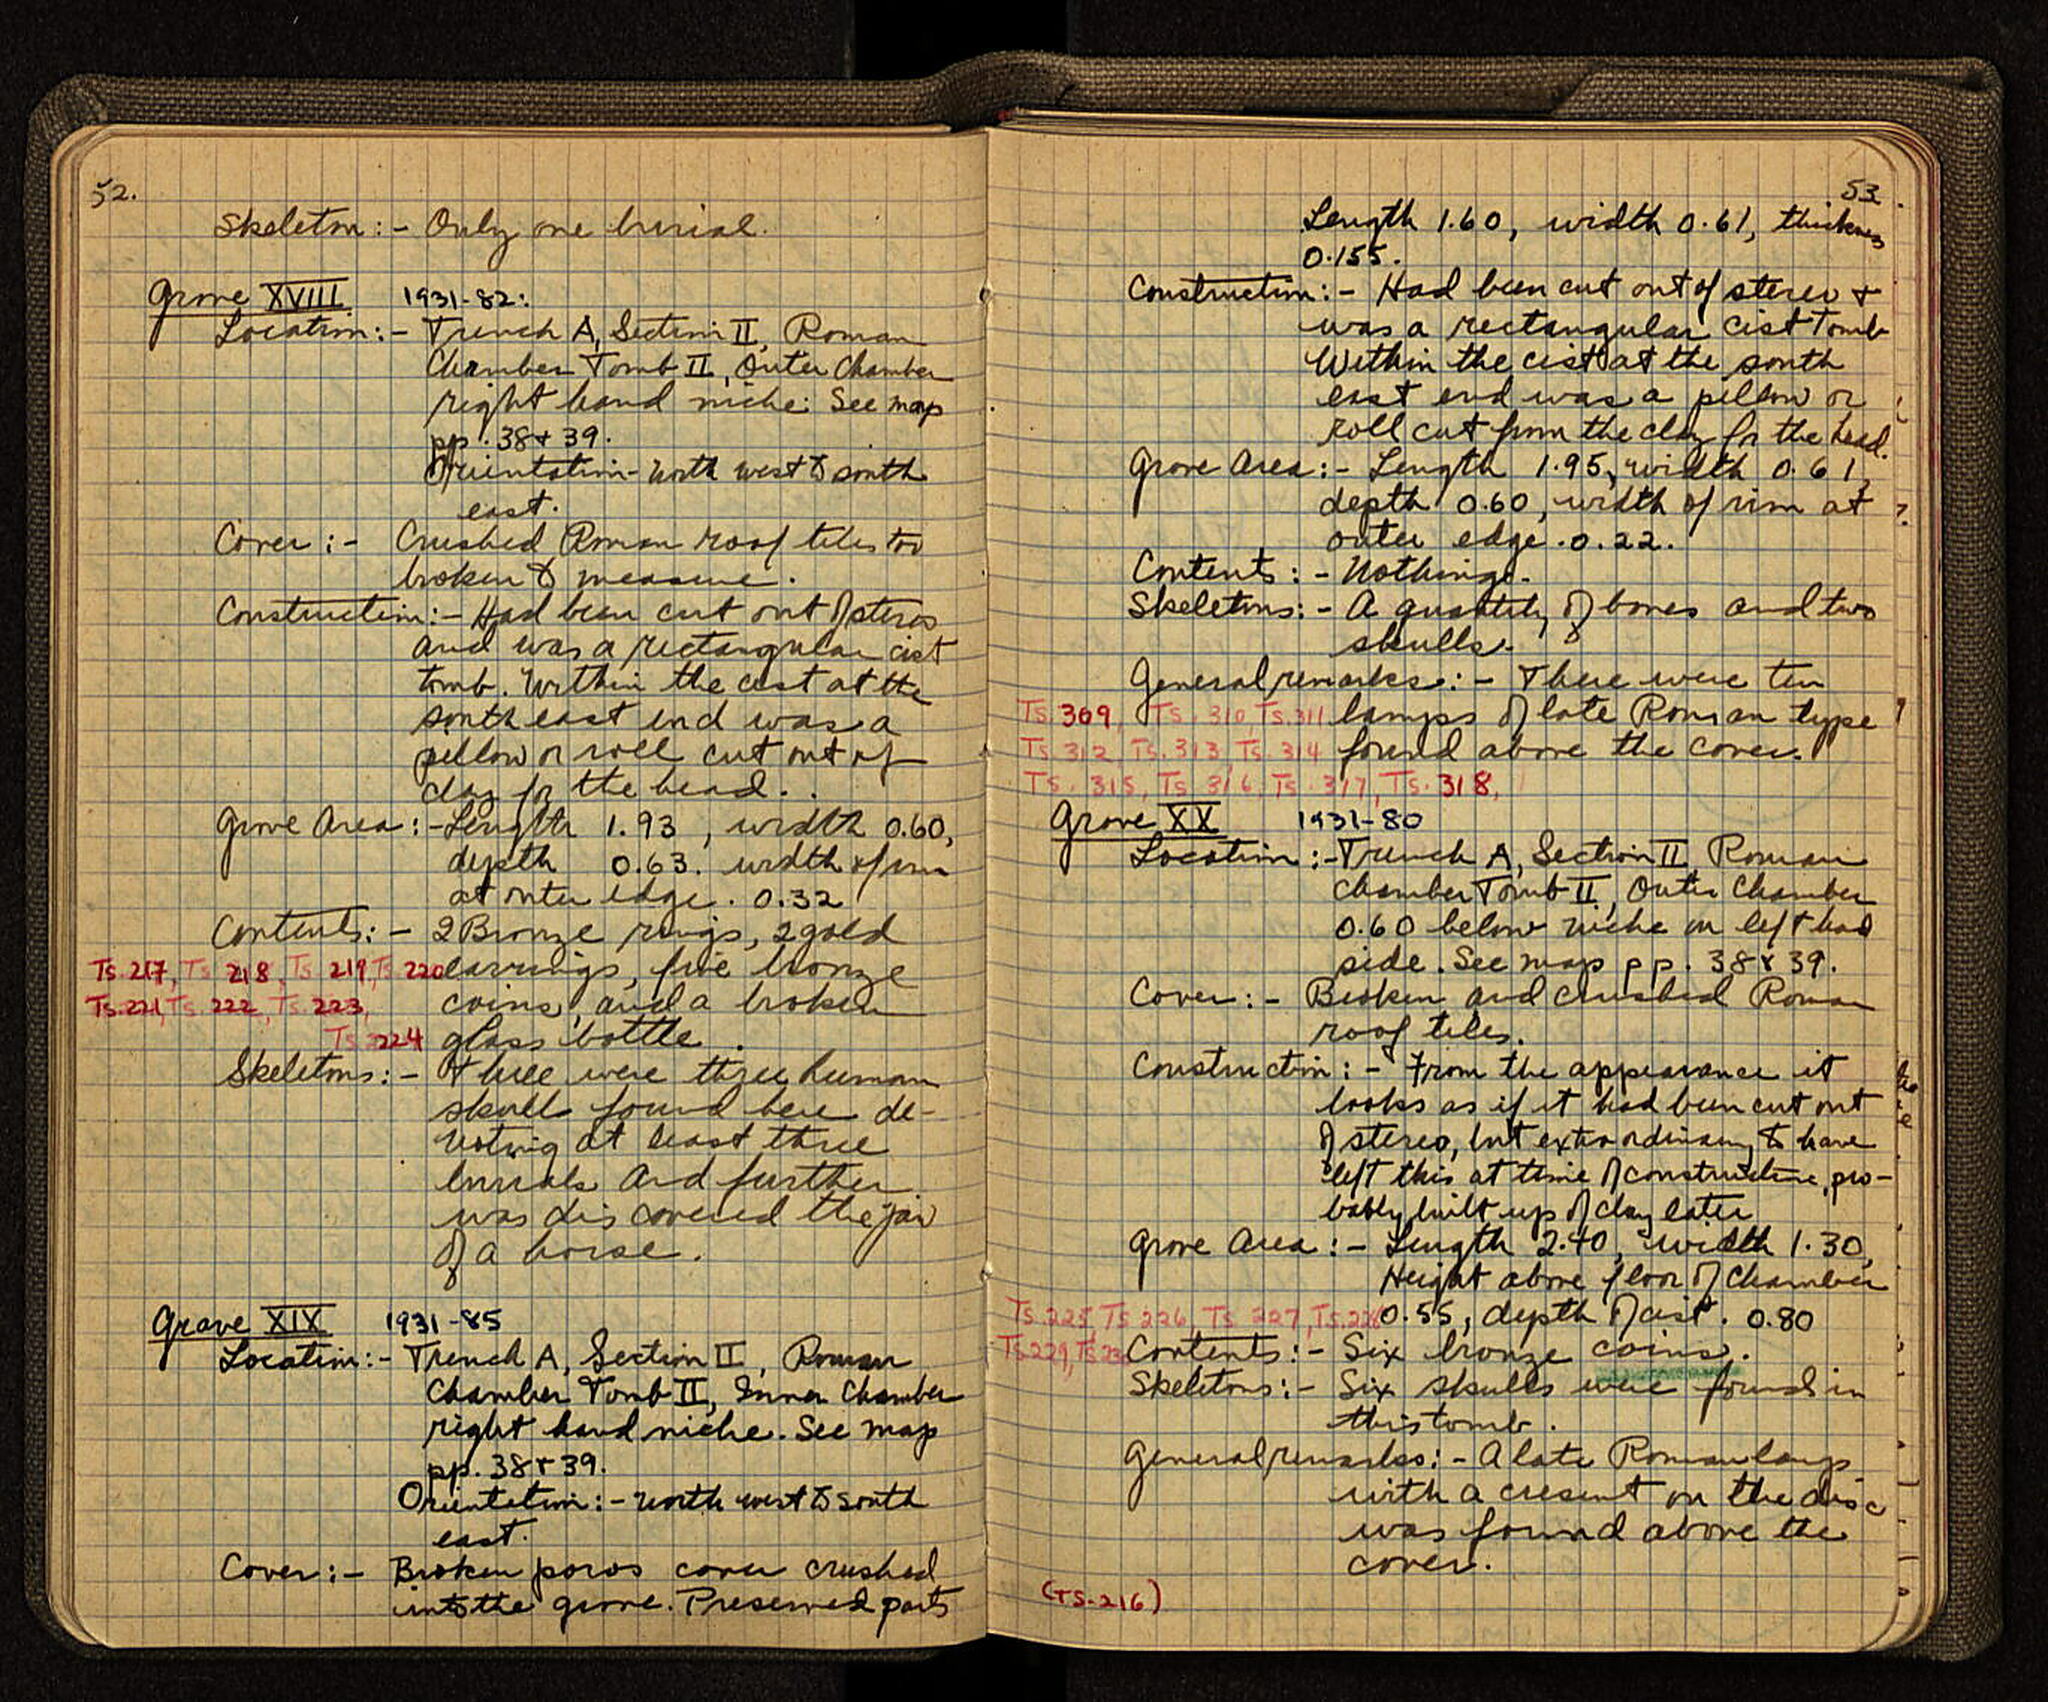 52.
Skeleton:- Only one burial.
Grave XVIII 1931-82:
Location:- Trench A, Section II, Roman
Chamber Tomb II, Outer Chamber
right hand niche. See map
pp. 38 + 39.
Orientation- North west to south
east.
Cover:- Crushed Roman roof tiles too
broken to measure.
Construction:- Had been cut out of stereo
and was a rectangular cist
tomb. Within the cist at the
south east end was a
pillow or roll cut out of
clay for the head..
Grave Area:- Length 1.93, width 0.60,
depth 0.63. width of rim
at outer edge. 0.32
Contents:- 2 Bronze rings, 2 gold
Ts. 217, Ts 218, Ts 219, Ts 220 earrings, five bronze
Ts. 221, Ts 222, Ts. 223, coins, and a broken
Ts 224 glass bottle.
Skeletons:- There were three human
skull found here de-
noting at least three
burials and further
was discovered the jaw
of a horse.
Grave XIX 1931-85
Location:- Trench A, Section II, Roman
Chamber Tomb II, Inner Chamber
right hand niche. See map
pp. 38 + 39.
Orientation:- North west to south
east.
Cover:- Broken poros cover crushed
into the grave. Preserved parts
53.
Length 1.60, width 0.61, thickness
0.155.
Construction:- Had been cut out of stereo +
was a rectangular cist tomb
Within the cist at the south
east end was a pillow or
roll cut from the clay for the head.
Grave Area:- Length 1.95, width 0.61,
depth 0.60, width of rim at
outer edge. 0.22.
Contents:- Nothing.
Skeletons:- A quantity of bones and two
skulls.
General remarks:- There were ten
Ts. 309, Ts. 310 Ts. 311 lamps of late Roman type
Ts. 312, Ts. 313, Ts. 314 found above the cover.
Ts. 315, Ts 316, Ts. 317, Ts. 318,
Grave XX 1931-80
Location:- Trench A, Section II Roman
Chamber Tomb II, Outer Chamber
0.60 below niche on left had
side. See map pp. 38 + 39.
Cover:- Broken and crushed Roman
roof tiles.
Construction:- From the appearance it
looks as if it had been cut out
of stereo, but extraordinary to have
left this at time of construction, pro-
bably built up of clay later
Grave Area:- Length 2.40, width 1.30,
Height above floor of chamber
Ts. 225, Ts 226, Ts 227, Ts. 228 0.55, depth of cist. 0.80
Ts. 229, Ts 230 Contents:- Six bronze coins.
Skeletons:- Six skulls were found in
this tomb.
General remarks:- A late Roman lamp
with a cresent on the disc
was found above the
cover.
(TS. 216)